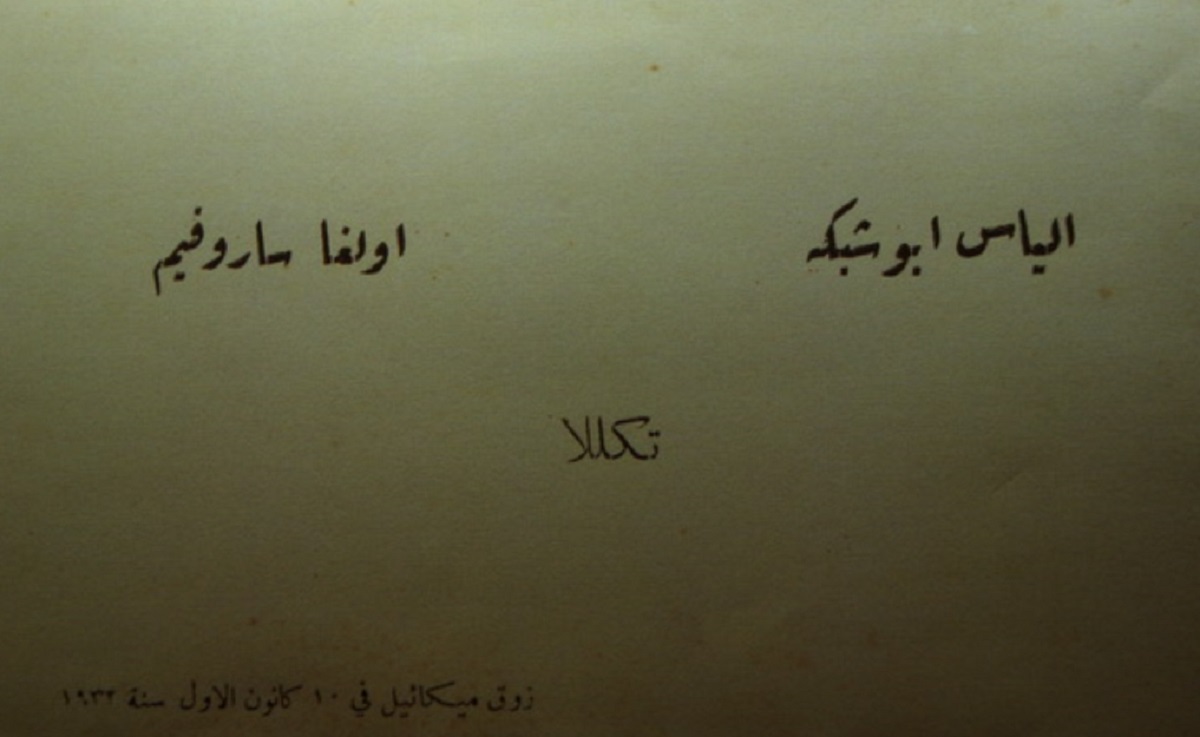 الياس ابو شبكه
اولغا ساروفيم
تكللا
زوق ميكائيل في ١٠ كانون الاول سنة ١٩٣٢